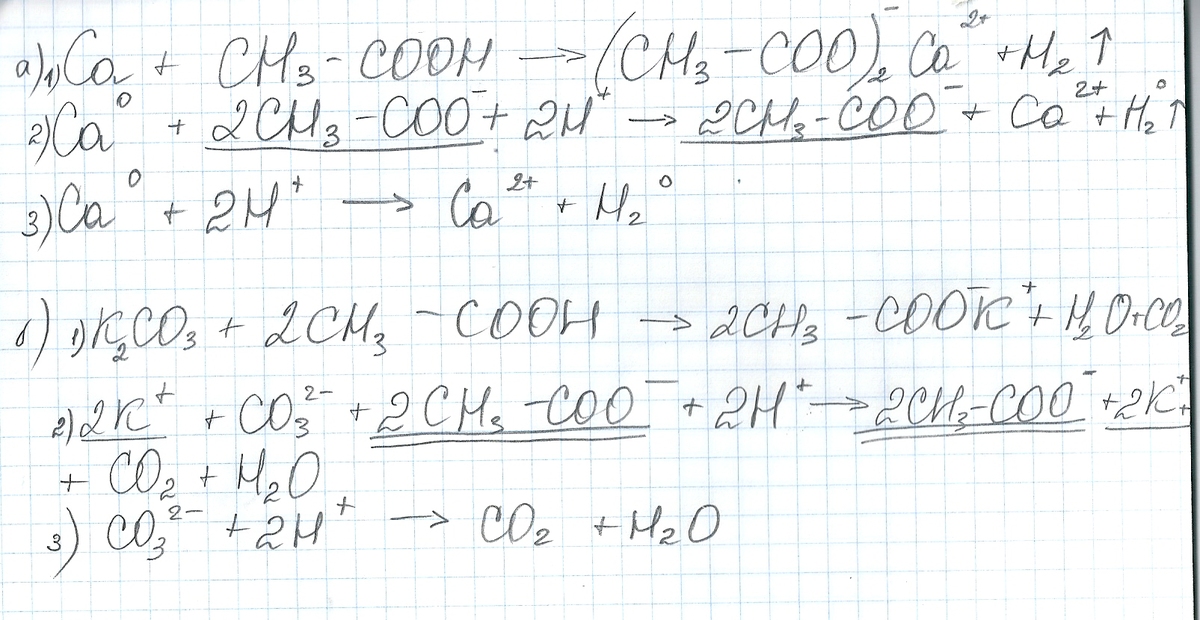 а) 1) Ca + CH₃-COOH → (CH₃-COO)₂⁻ Ca²⁺ + H₂↑
2) Ca⁰ + 2CH₃-COO⁻ + 2H⁺ → 2CH₃-COO⁻ + Ca²⁺ + H₂⁰↑
3) Ca⁰ + 2H⁺ → Ca²⁺ + H₂⁰
б) 1) K₂CO₃ + 2CH₃-COOH → 2CH₃-COO⁻K⁺ + H₂O + CO₂
2) 2K⁺ + CO₃²⁻ + 2CH₃-COO⁻ + 2H⁺ → 2CH₃-COO⁻ + 2K⁺ +
+ CO₂ + H₂O
3) CO₃²⁻ + 2H⁺ → CO₂ + H₂O